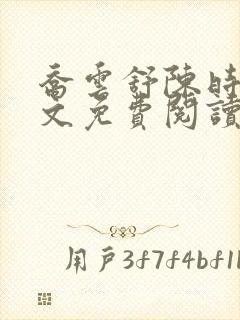 喬雲舒陳時
文免費閱讀
用戶3f7f4bf1